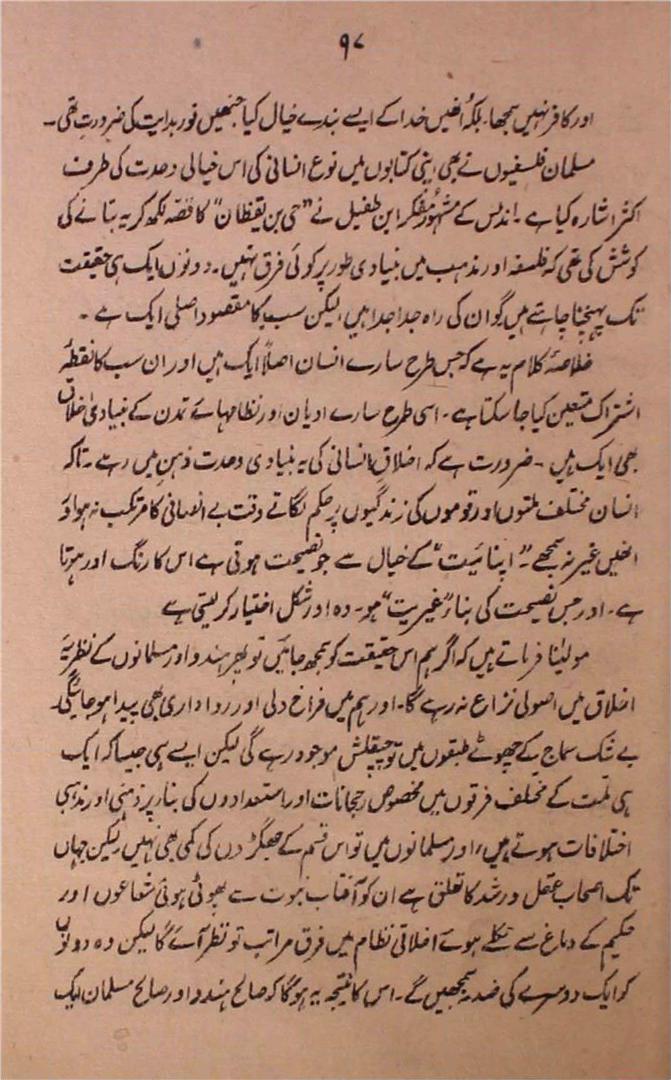 ۹۷
اور کافر نہیں سمجھا۔ بلکہ اُنھیں خدا کے ایسے بندے خیال کیا جنھیں نورِ ہدایت کی ضرورت تھی۔
مسلمان فلسفیوں نے بھی اپنی کتابوں میں نوع انسانی کی اس خیالی وحدت کی طرف
اکثر اشارہ کیا ہے۔ اندلس کے مشہور مُفکر ابن طفیل نے "حی بن یقظان" کا قصّہ لکھ کر یہ بتانے کی
کوشش کی تھی کہ فلسفہ اور مذہب میں بنیادی طور پر کوئی فرق نہیں۔ دونوں ایک ہی حقیقت
تک پہنچنا چاہتے ہیں گو ان کی راہ جدا جدا ہیں لیکن سب کا مقصودِ اصلی ایک ہے۔
خلاصۂ کلام یہ ہے کہ جس طرح سارے انسان اصلاً ایک ہیں اور ان سب کا نقطۂ
اشتراک متعین کیا جا سکتا ہے۔ اسی طرح سارے ادیان اور نظامہائے تمدن کے بنیادی اخلاق
بھی ایک ہیں۔ ضرورت ہے کہ اخلاقِ انسانی کی یہ بنیادی وحدت ذہن میں رہے۔ تاکہ
انسان مختلف ملتوں اور قوموں کی زندگیوں پر حکم لگاتے وقت بے انصافی کا مرتکب نہ ہو اور
انھیں غیر نہ سمجھے۔ "اپنائیت" کے خیال سے جو نصیحت ہوتی ہے اس کا رنگ اور ہوتا
ہے۔ اور جس نصیحت کی بنا "غیریت" ہو۔ وہ اور شکل اختیار کر لیتی ہے
مولینٰا فرماتے ہیں کہ اگر ہم اس حقیقت کو سمجھ جائیں تو پھر ہندو اور مسلمانوں کے نظریۂ
اخلاق میں اصولی نزاع نہ رہے گا۔ اور ہم میں فراخ دلی اور رواداری بھی پیدا ہو جائیگی۔
بے شک سماج کے چھوٹے طبقوں میں تو چپقلش موجود رہے گی لیکن ایسے ہی جیسا کہ ایک
ہی ملت کے مختلف فرقوں میں مخصوص رجحانات اور استعدادوں کی بنا پر ذہنی اور مذہبی
اختلافات ہوتے ہیں، اور مسلمانوں میں تو اس قسم کے جھگڑوں کی کمی بھی نہیں، لیکن جہاں
تک اصحابِ عقل و رشد کا تعلق ہے ان کو آفتابِ نبوت سے پھوٹی ہوئی شعاعوں اور
حکیم کے دماغ سے نکلے ہوئے اخلاقی نظام میں فرق مراتب تو نظر آئے گا لیکن وہ دونوں
کو ایک دوسرے کی ضد نہ سمجھیں گے۔ اس کا نتیجہ یہ ہوگا کہ صالح ہندو اور صالح مسلمان ایک